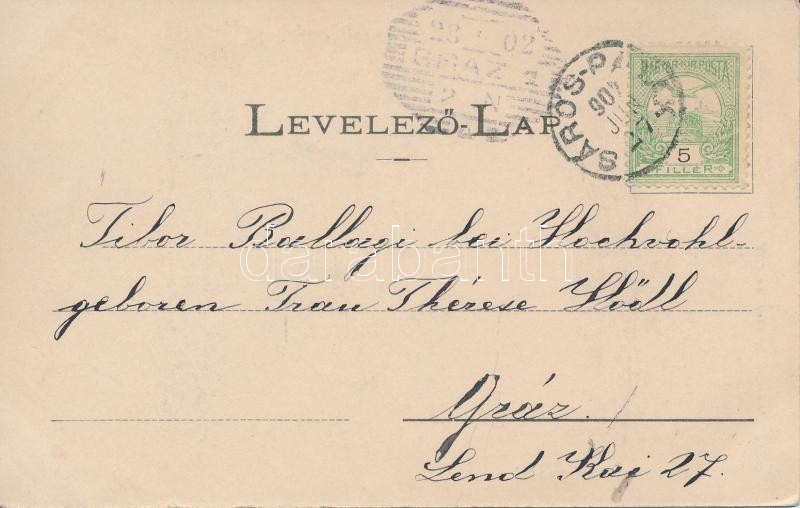 28 02
GRAZ 1
2 N
SÁROS-P
902
JUN
27
MAGYAR KIR. POSTA
5
FILLÉR
LEVELEZŐ-LAP
Tibor Ballagi bei Hochwohl-
geboren Frau Thérese Hödl
Gráz.
Lend Kai 27.
darabanth